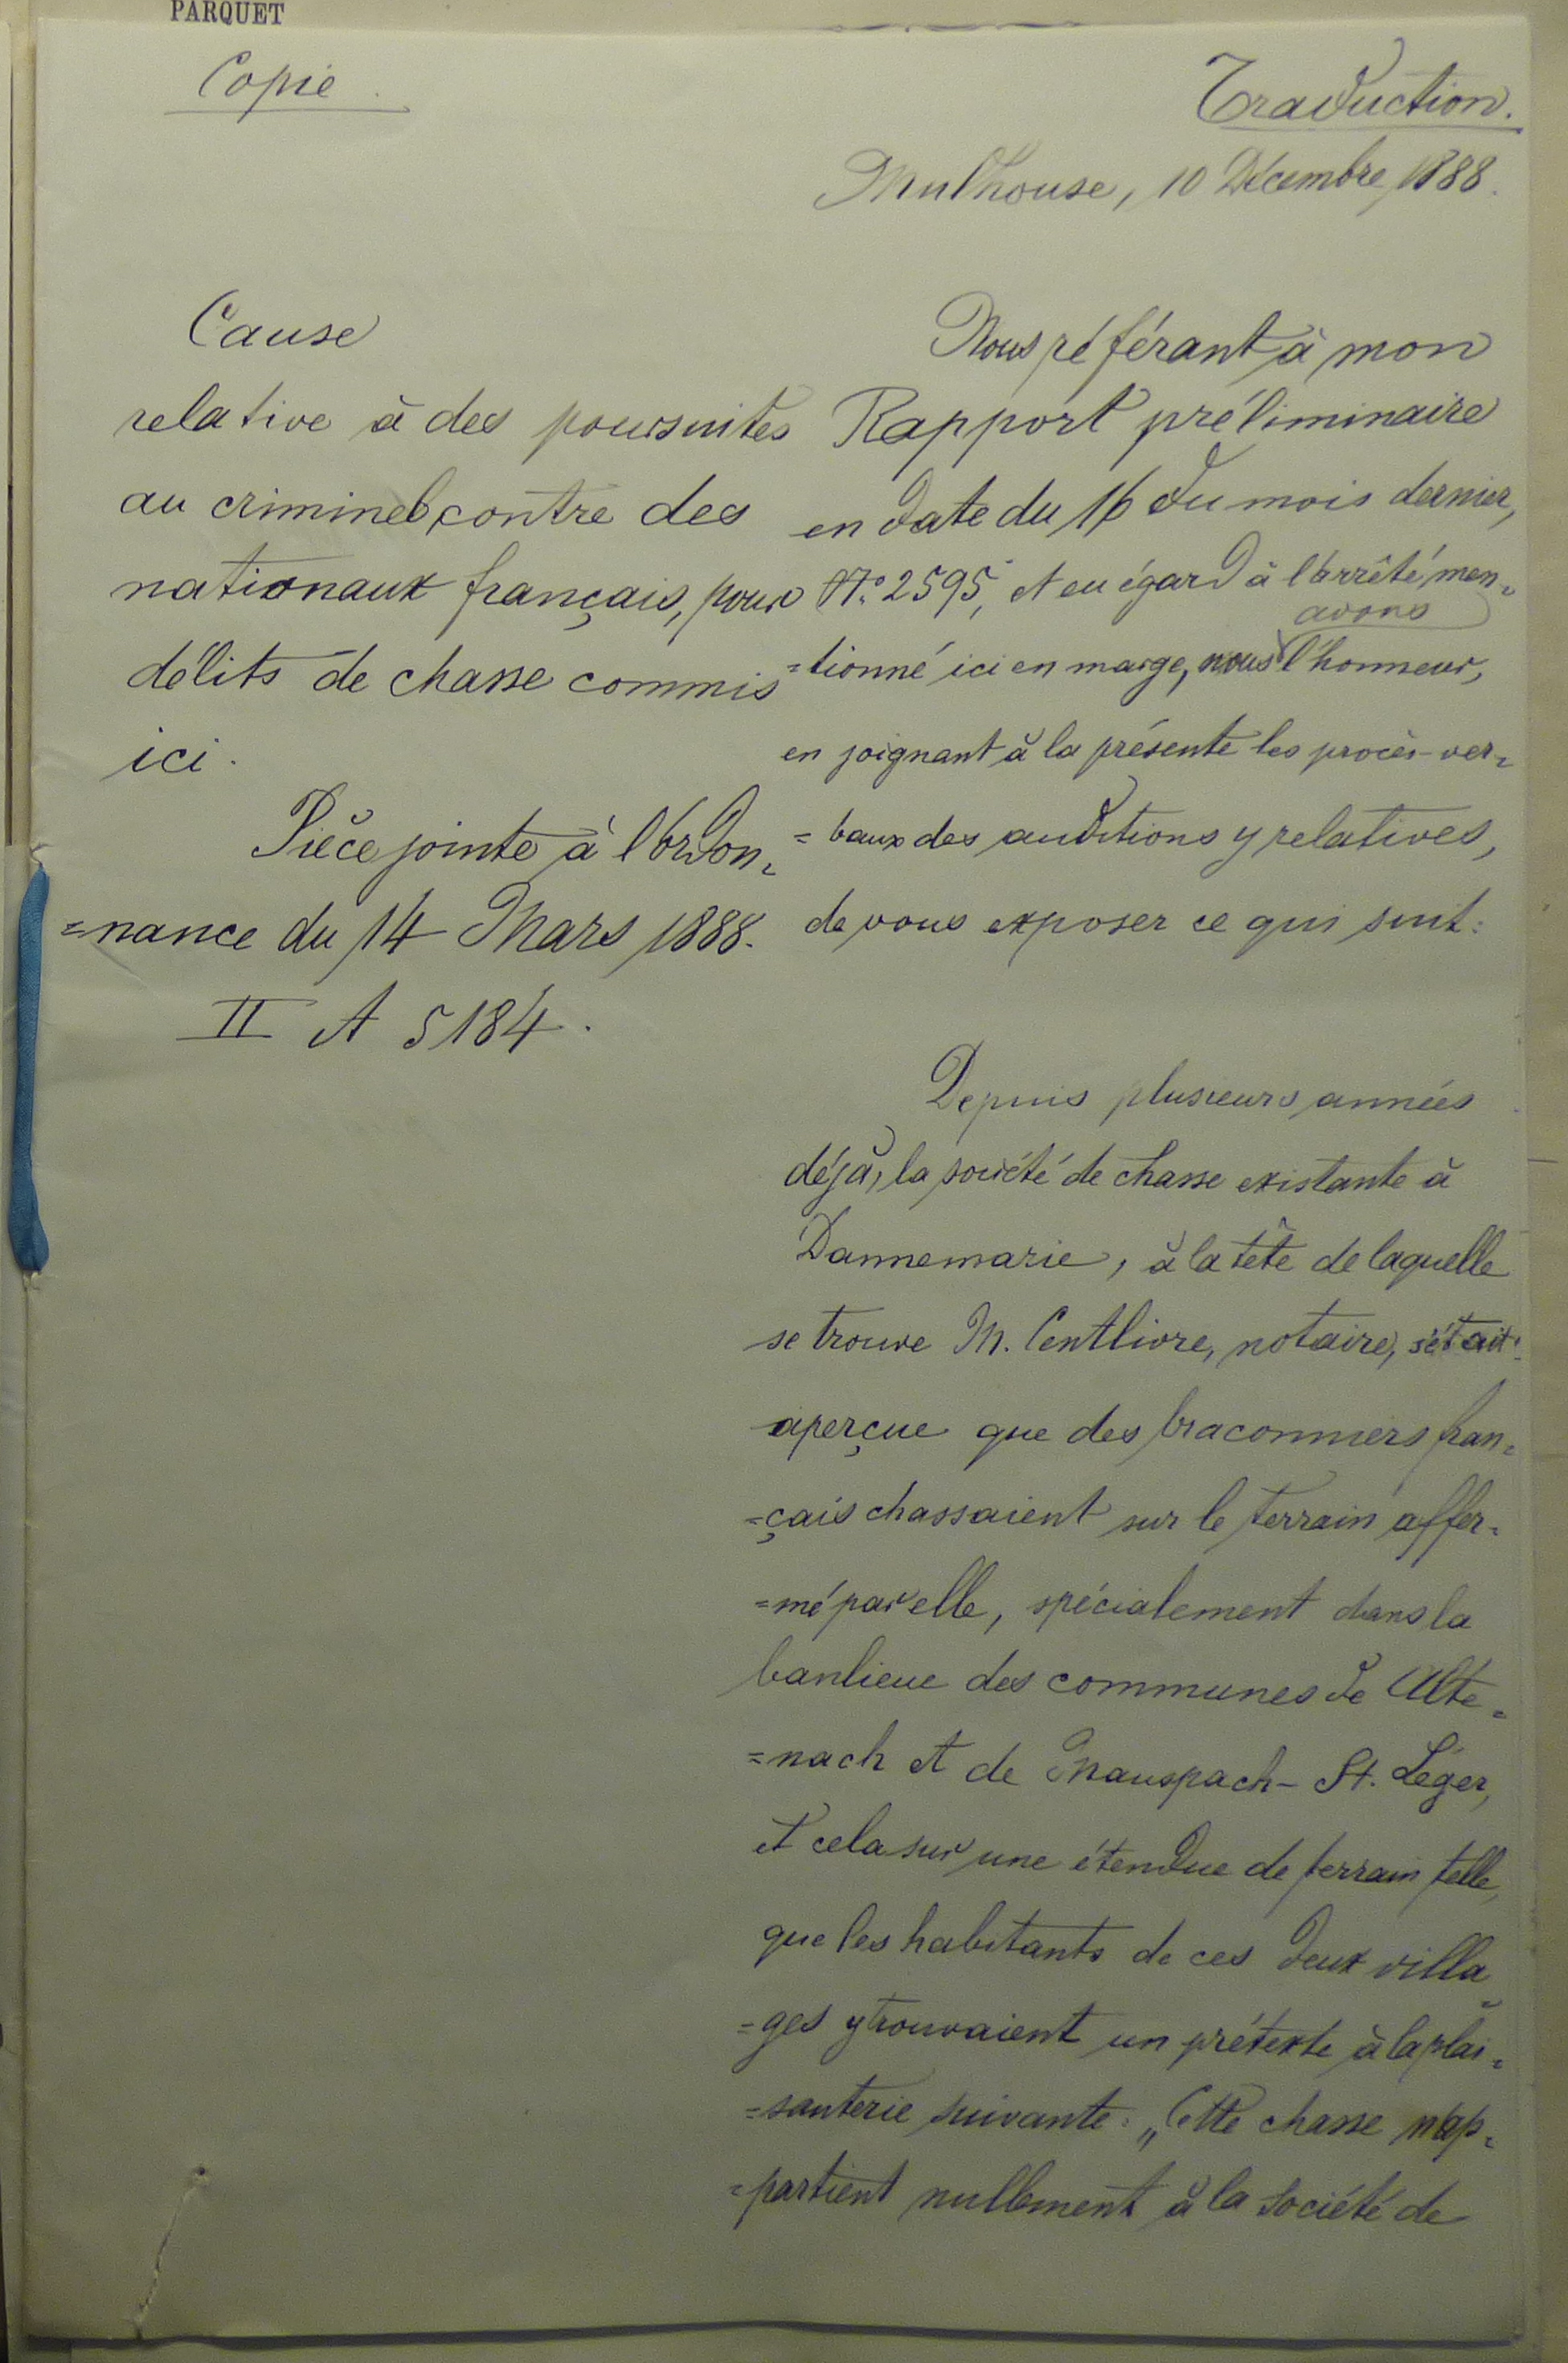 PARQUET
Copie
Traduction.
Mulhouse, 10 Décembre 1888.
Cause
relative à des poursuites
au criminel, contre des
nationaux français, pour
délits de chasse commis
ici.
Pièce jointe à l'Ordon=
=nance du 14 Mars 1888.
II A 5184.
Nous référant à mon
Rapport préliminaire
en date du 16 du mois dernier,
N.º 2595, et eu égard à l'Arrêté, men=
avons
=tionné ici en marge, nous l'honneur,
en joignant à la présente les procès-ver=
=baux des auditions y relatives,
de vous exposer ce qui suit:
Depuis plusieurs années
déjà, la société de chasse existante à
Dannemarie, à la tête de laquelle
se trouve M. Centlivre, notaire, s'était
aperçue que des braconniers fran=
=çais chassaient sur le terrain affer=
=mé par elle, spécialement dans la
banlieue des communes de Alte=
=nach et de Mauspach- St. Léger,
et cela sur une étendue de terrain telle,
que les habitants de ces deux villa=
=ges y trouvaient un prétexte à la plai=
=santerie suivante: „Cette chasse n'ap=
=partient nullement à la société de